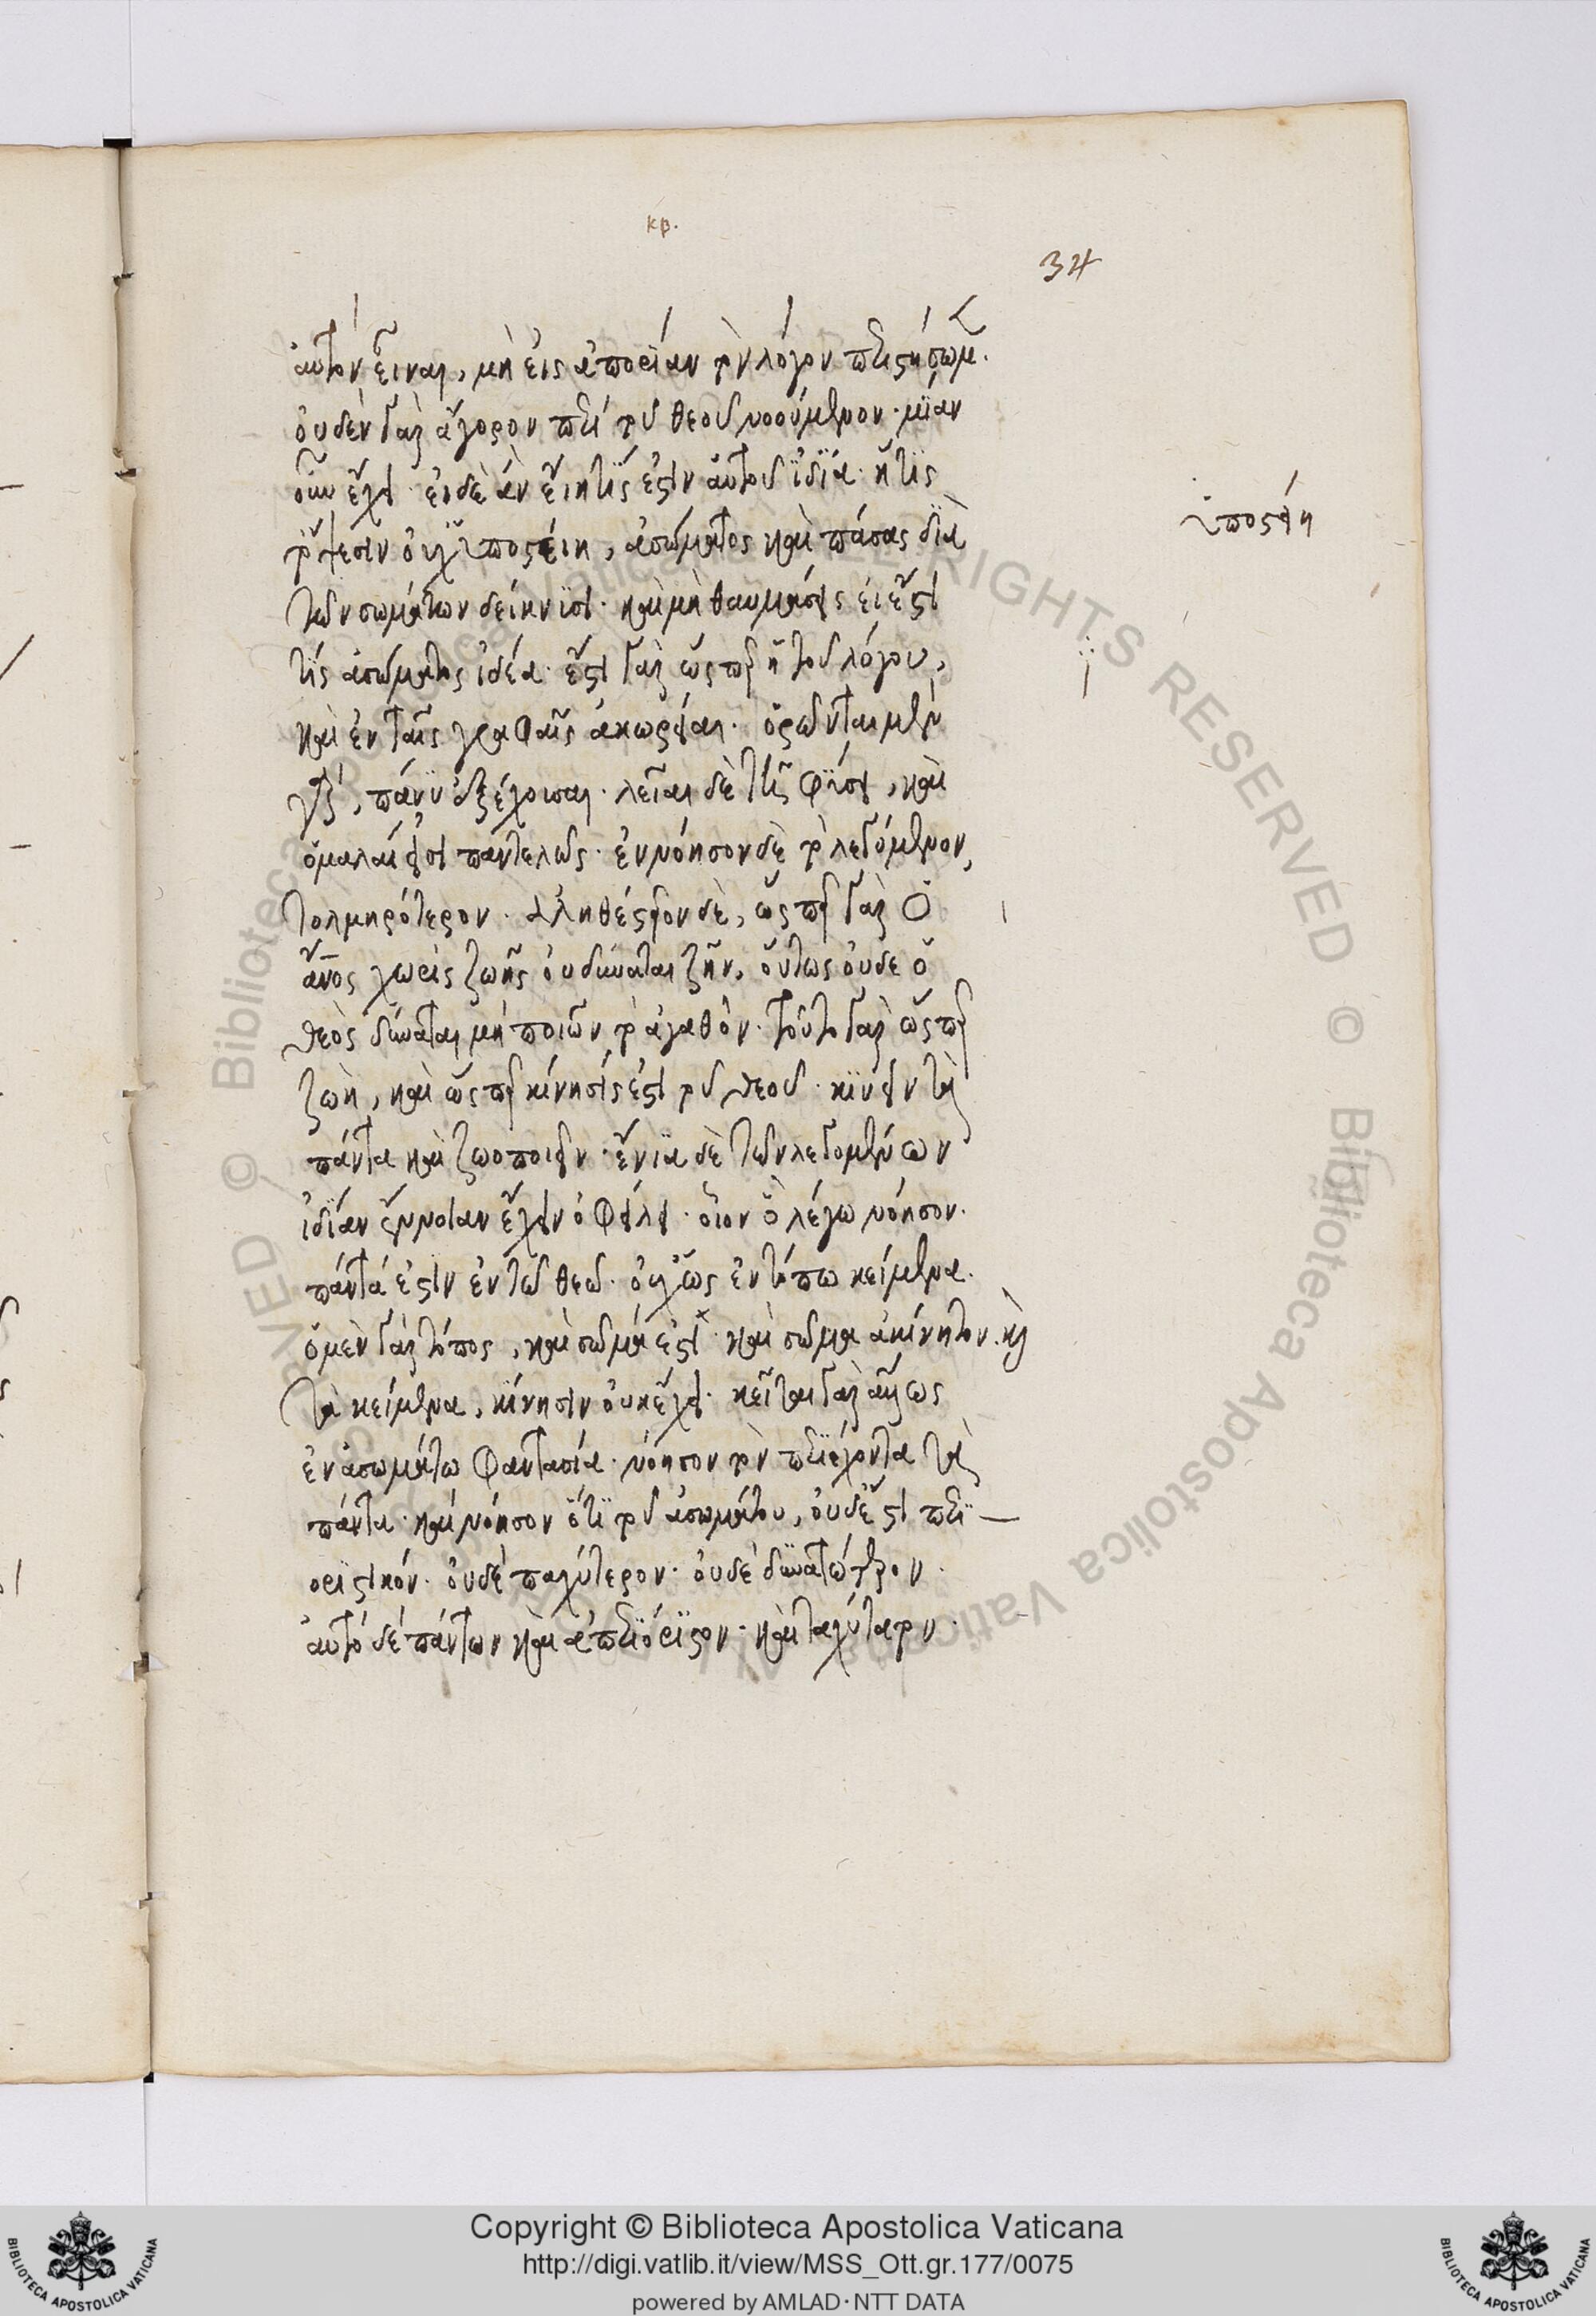 κβ.
34
αὐτὸν εἶναι, μὴ εἰς ἀπορίαν τὸν λόγον περιστήσωμεν.
οὐδὲν γὰρ ἄπορον περὶ τοῦ θεοῦ νοούμενον· μίαν
οὖν ἔχει· εἰδὲ ἀν εἴη τίς ἐστιν αὐτοῦ ἰδία· ἥτις
οὐχ ὑποσταίη, ἀσώματος καὶ πάσας διὰ
τῶν σωμάτων δείκνισι· καὶ μὴ θαυμάσεις εἰ ἔστι
τίς ἀσώματος ἰδέα· ἔστι γὰρ ὥσπερ ἡ τοῦ λόγου,
καὶ ἐν ταῖς γραφαῖς ὁρῶνται μὲν
πάνυ ἐξέχουσαι· λεῖαι δὲ τῇ φύσει, καὶ
ὁμαλαί εἰσι παντελῶς· ἐννόησον δὲ τὸ λεγόμενον,
τολμηρότερον· ἀληθέστερον δὲ, ὥσπερ γὰρ ὁ
ἄνος χωρὶς ζωῆς οὐ δύναται ζῆν, οὕτως οὐδὲ ὁ
θεὸς δύναται μὴ ποιῶν τὸ ἀγαθὸν· τοῦτο γὰρ ὥσπερ
ζωὴ, καὶ ὥσπερ κίνησίς ἐστι τοῦ θεοῦ· κινεῖν τὰ
πάντα καὶ ζωοποιεῖν· ἔνια δὲ τῶν λεγομένων
ἰδίαν ἔννοιαν ἔχειν ὀφείλει· οἷον ὃ λέγω νόησον.
πάντά ἐστιν ἐν τῶ θεῶ· οὐχ ὡς ἐν τόπω κείμενα.
ὁ μὲν γὰρ τόπος, καὶ σῶμά ἐστι· καὶ σῶμα ἀκίνητον. καὶ
τὰ κείμενα, κίνησιν οὐκ ἔχει· κεῖται γὰρ ἄλλως
ἐν ἀσωμάτω φαντασία· νόησον τὸν περιέχοντα τὰ
πάντα· καὶ νόησον ὅτι τοῦ ἀσωμάτου, οὐδὲ ἔστι περι-
οριστικόν· οὐδὲ παχύτερον· οὐδὲ δυνατώτερον·
αὐτὸ δὲ πάντων καὶ ἀπεριόριστον· καὶ ταχύτατον·
ὑποσταίη
Copyright © Biblioteca Apostolica Vaticana
http://digi.vatlib.it/view/MSS_Ott.gr.177/0075
powered by AMLAD·NTT DATA